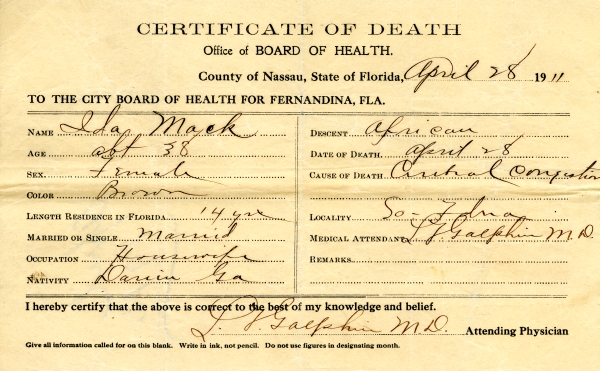 CERTIFICATE OF DEATH
Office of BOARD OF HEALTH.
County of Nassau, State of Florida, April 28 1911
TO THE CITY BOARD OF HEALTH FOR FERNANDINA, FLA.
NAME Ida Mack
AGE abt 38
SEX. Female
COLOR Brown
LENGTH RESIDENCE IN FLORIDA 14 yrs
MARRIED OR SINGLE Married
OCCUPATION Housewife
NATIVITY Darien Ga
DESCENT African
DATE OF DEATH. April 28
CAUSE OF DEATH Cerebral Congestion
LOCALITY So-
MEDICAL ATTENDANT Galphin M.D.
REMARKS
I hereby certify that the above is correct to the best of my knowledge and belief.
Galphin M.D. Attending Physician
Give all information called for on this blank. Write in ink, not pencil. Do not use figures in designating month.